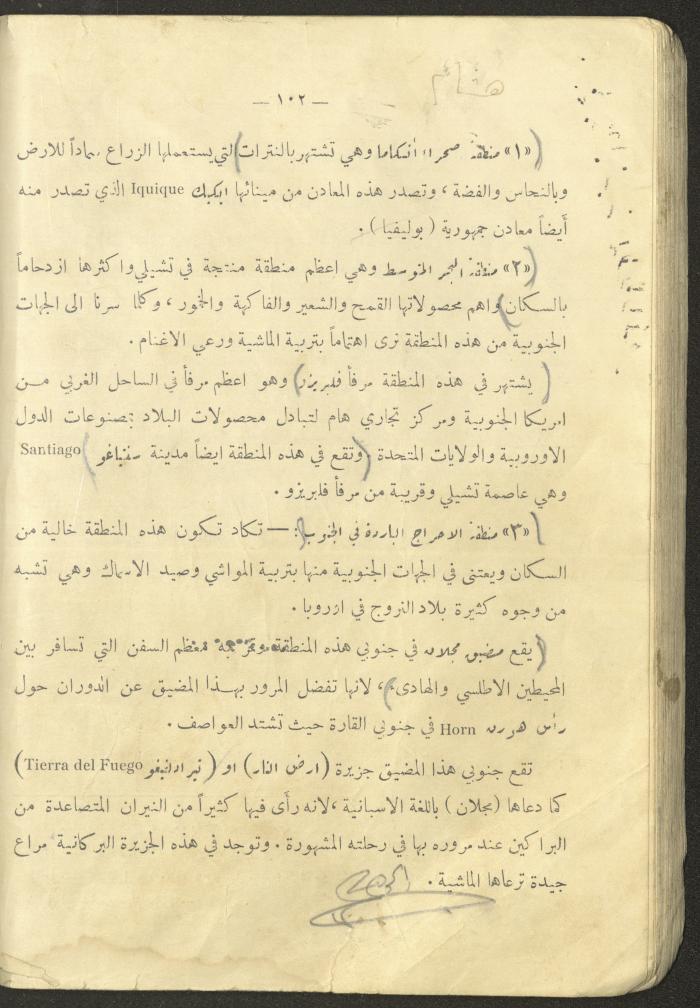 هشام
— ١٠٢ —
(«١» منطقة صحراء أتكاما وهي تشتهر بالنترات) التي يستعملها الزراع سماداً للارض
وبالنحاس والفضة ، وتصدر هذه المعادن من مينائها ايكيك Iquique الذي تصدر منه
أيضاً معادن جمهورية ( بوليفيا ) .
(«٢» منطقة البحر المتوسط وهي اعظم منطقة منتجة في تشيلي واكثرها ازدحاماً
بالسكان) واهم محصولاتها القمح والشعير والفاكهة والخمور ، وكلما سرنا الى الجهات
الجنوبية من هذه المنطقة نرى اهتماماً بتربية الماشية ورعي الاغنام .
( يشتهر في هذه المنطقة مرفأ فلبريزو) وهو اعظم مرفأ في الساحل الغربي مــن
امريكا الجنوبية ومركز تجاري هام لتبادل محصولات البلاد بمصنوعات الدول
الاوروبية والولايات المتحدة (وتقع في هذه المنطقة ايضاً مدينة سنتياغو) Santiago
وهي عاصمة تشيلي وقريبة من مرفأ فلبريزو .
(«٣» منطقة الاحراج الباردة في الجنوب): — تكاد تكون هذه المنطقة خالية من
السكان ويعتنى في الجهات الجنوبية منها بتربية المواشي وصيد الاسماك وهي تشبه
من وجوه كثيرة بلاد النروج في اوروبا .
(يقع مضيق مجلان في جنوبي هذه المنطقة معظم السفن التي تسافر بين
المحيطين الاطلسي والهادىء) ، لانها تفضل المرور بهــذا المضيق عن الدوران حول
رأس هورن Horn في جنوبي القارة حيث تشتد العواصف .
تقع جنوبي هذا المضيق جزيرة (ارض النار) او (تيرا دلفيغو Tierra del Fuego)
كما دعاها (مجلان) باللغة الاسبانية ، لانه رأى فيها كثيراً من النيران المتصاعدة من
البراكين عند مروره بها في رحلته المشهورة . وتوجد في هذه الجزيرة البركانية مراع
جيدة ترعاها الماشية .